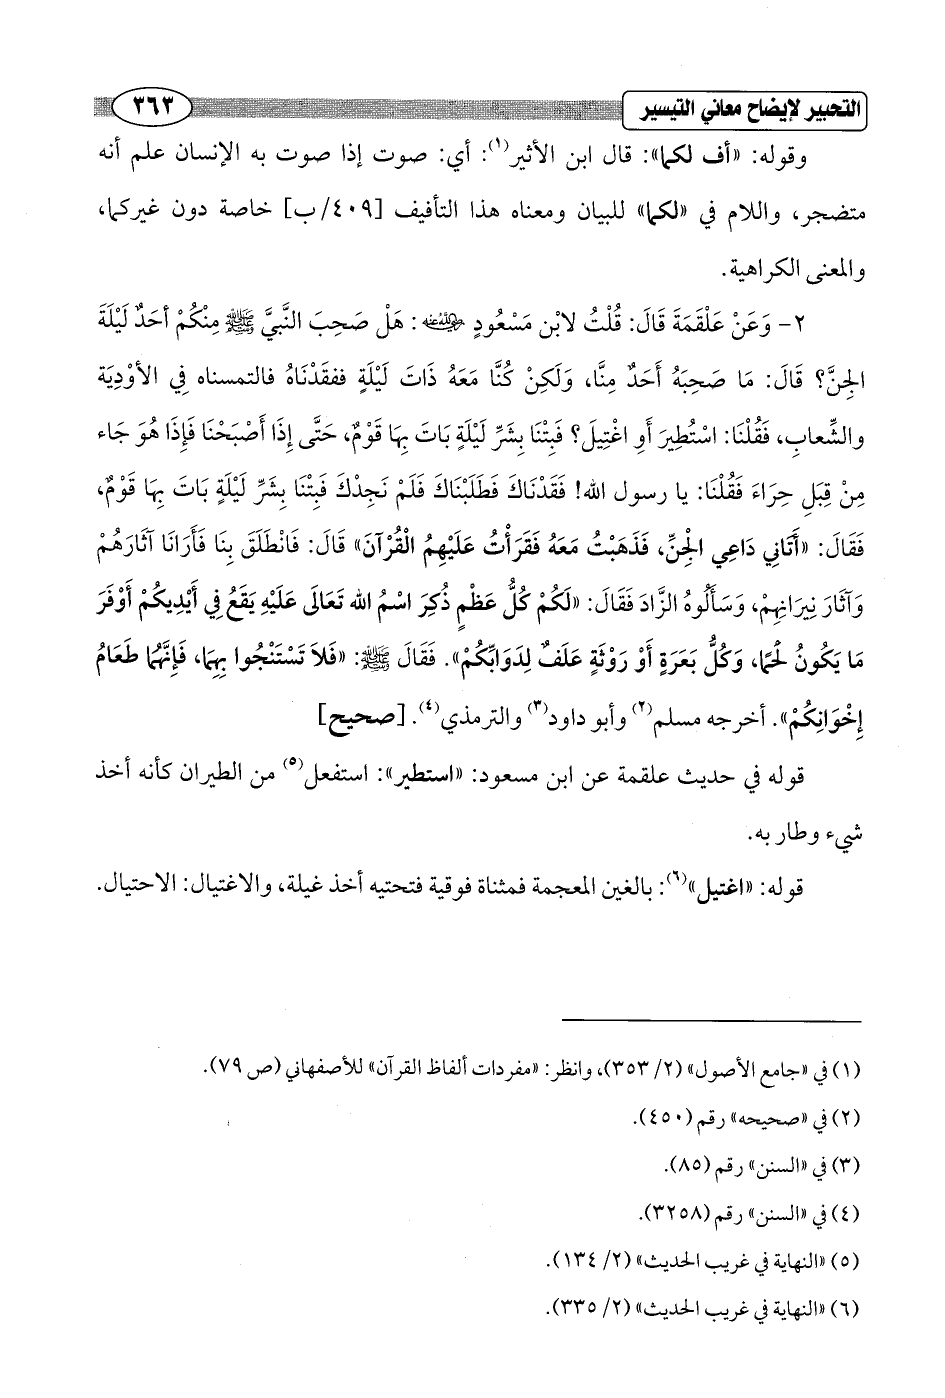 التحبير لإيضاح معاني التيسير ٣٦٣
وقوله: «أف لكما»: قال ابن الأثير(١): أي: صوت إذا صوت به الإنسان علم أنه
متضجر، واللام في «لكما» للبيان ومعناه هذا التأفيف [٤٠٩/ ب] خاصة دون غيركما،
والمعنى الكراهية.
٢- وَعَنْ عَلْقَمَةَ قَالَ: قُلْتُ لابْنِ مَسْعُودٍ رضي الله عنه: هَلْ صَحِبَ النَّبِيَّ ﷺ مِنْكُمْ أَحَدٌ لَيْلَةَ
الجِنَّ؟ قَالَ: مَا صَحِبَهُ أَحَدٌ مِنَّا، وَلَكِنْ كُنَّا مَعَهُ ذَاتَ لَيْلَةٍ ففقَدْنَاهُ فالتمسناه فِي الأوْدِيَة
والشِّعابِ، فَقُلْنَا: اسْتُطِيرَ أَو اغْتِيلَ؟ فَبِتْنَا بِشَرِّ لَيْلَةٍ بَاتَ بِهَا قَوْمٌ، حَتَّى إِذَا أَصْبَحْنَا فَإِذَا هُوَ جَاء
مِنْ قِبَلِ حِرَاءَ فَقُلْنَا: يا رسول الله! فَقَدْنَاكَ فَطَلَبْنَاكَ فَلَمْ نَجِدْكَ فَبِتْنَا بِشَرِّ لَيْلَةٍ بَاتَ بِهَا قَوْمٌ،
فَقَالَ: «أَتَانِي دَاعِي الجِنِّ، فَذَهَبْتُ مَعَهُ فَقَرَأْتُ عَلَيْهِمُ الْقُرْآنَ» قَالَ: فَانْطَلَقَ بِنَا فَأَرَانَا آثَارَهُمْ
وَآثَارَ نِيرَانِهِمْ، وَسَأَلُوهُ الزَّادَ فَقَالَ: «لَكُمْ كُلُّ عَظْمٍ ذُكِرَ اسْمُ الله تَعَالَى عَلَيْهِ يَقَعُ فِي أَيْدِيكُمْ أَوْفَرَ
مَا يَكُونُ لَحْمًا، وَكُلُّ بَعَرَةٍ أَوْ رَوْثَةٍ عَلَفٌ لِدَوَابِّكُمْ». فَقَالَ ﷺ: «فَلاَ تَسْتَنْجُوا بِهِمَا، فَإِنَّهُمَا طَعَامُ
إِخْوَانِكُمْ». أخرجه مسلم(٢) وأبو داود(٣) والترمذي(٤). [صحيح]
قوله في حديث علقمة عن ابن مسعود: «استطير»: استفعل(٥) من الطيران كأنه أخذ
شيء وطار به.
قوله: «اغتيل»(٦): بالغين المعجمة فمثناة فوقية فتحتيه أخذ غيلة، والاغتيال: الاحتيال.
(١) في «جامع الأصول» (٢/ ٣٥٣)، وانظر: «مفردات ألفاظ القرآن» للأصفهاني (ص ٧٩).
(٢) في «صحيحه» رقم (٤٥٠).
(٣) في «السنن» رقم (٨٥).
(٤) في «السنن» رقم (٣٢٥٨).
(٥) «النهاية في غريب الحديث» (٢/ ١٣٤).
(٦) «النهاية في غريب الحديث» (٢/ ٣٣٥).